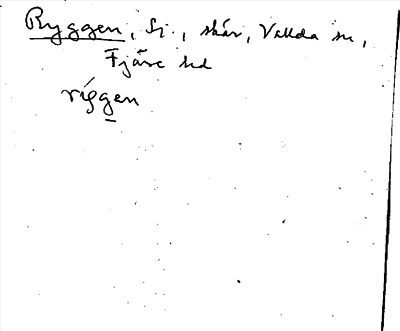 Ryggen, Sz., skär, Vallda sn,
Fjäre hd
ríggen